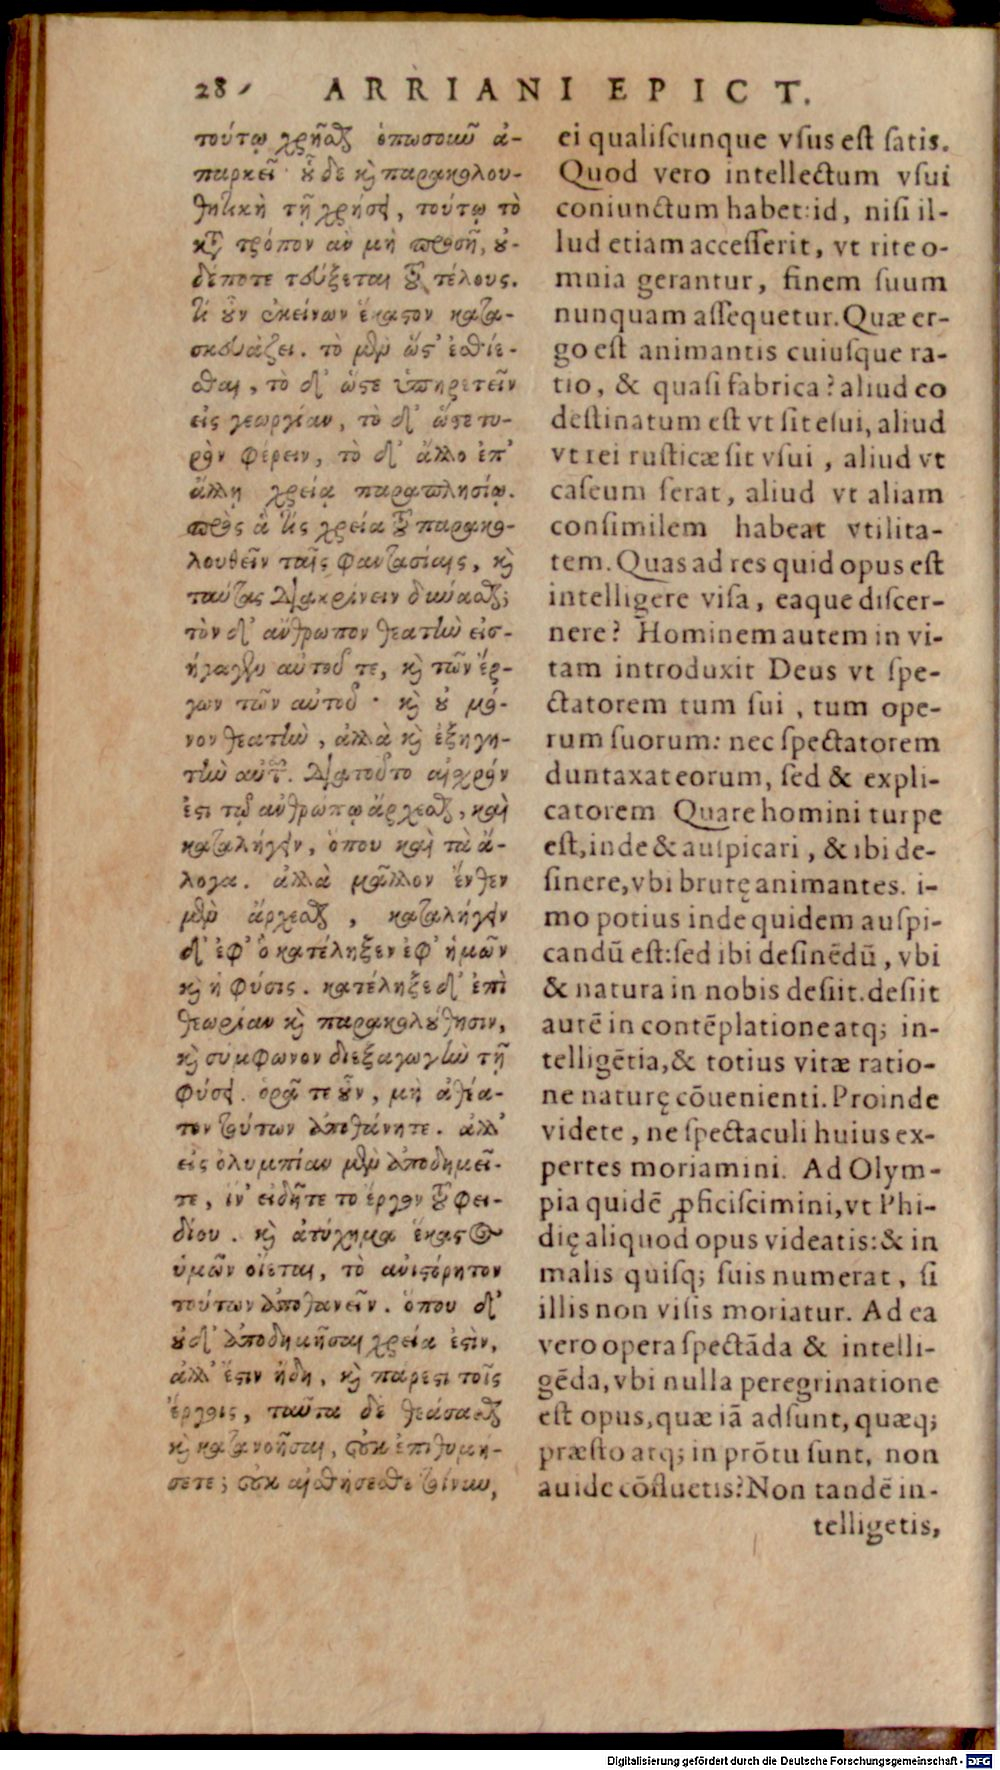 28 ARRIANI EPICT.
τούτῳ χρῆσθαι ὁπωσοιοῦν ἀ-
παρκεῖ· οὗ δὲ καὶ παρακολου-
θητικὴ τῇ χρήσει, τούτῳ τὸ
κατὰ τρόπον ἂν μὴ προσῇ, οὐ-
δέποτε τεύξεται τοῦ τέλους.
τί οὖν ἐκείνων ἕκαστον κατα-
σκευάζει. τὸ μὲν ὥστ' ἐσθίε-
σθαι, τὸ δ' ὥστε ὑπηρετεῖν
εἰς γεωργίαν, τὸ δ' ὥστε τυ-
ρὸν φέρειν, τὸ δ' ἄλλο ἐπ'
ἄλλῃ χρείᾳ παραπλησίῳ.
πρὸς ἃ τίς χρεία τοῦ παρακο-
λουθεῖν ταῖς φαντασίαις, καὶ
ταύτας διακρίνειν δύνασθαι;
τὸν δ' ἄνθρωπον θεατὴν εἰσ-
ήγαγεν αὐτοῦ τε, καὶ τῶν ἔρ-
γων τῶν αὐτοῦ· καὶ οὐ μό-
νον θεατὴν, ἀλλὰ καὶ ἐξηγη-
τὴν αὐτῶν. διατοῦτο αἰσχρόν
ἐστι τῷ ἀνθρώπῳ ἄρχεσθαι, καὶ
καταλήγειν, ὅπου καὶ τὰ ἄ-
λογα. ἀλλὰ μᾶλλον ἔνθεν
μὲν ἄρχεσθαι, καταλήγειν
δ' ἐφ' ὃ κατέληξεν ἐφ' ἡμῶν
καὶ ἡ φύσις. κατέληξε δ' ἐπὶ
θεωρίαν καὶ παρακολούθησιν,
καὶ σύμφωνον διεξαγωγὴν τῇ
φύσει. ὁρᾶτε οὖν, μὴ ἀθέα-
τοι τούτων ἀποθάνητε. ἀλλ'
εἰς ὀλυμπίαν μὲν ἀποδημεῖ-
τε, ἵν' εἰδῆτε τὸ ἔργον τοῦ φει-
δίου. καὶ ἀτύχημα ἕκαστος
ὑμῶν οἴεται, τὸ ἀνιστόρητον
τούτων ἀποθανεῖν. ὅπου δ'
οὐδ' ἀποδημῆσαι χρεία ἐστὶν,
ἀλλ' ἔστιν ἤδη, καὶ πάρεστι τοῖς
ἔργοις, ταῦτα δὲ θεάσασθαι
καὶ κατανοῆσαι, οὐκ ἐπιθυμή-
σετε; οὐκ αἰσθήσεσθε τοίνυν,
ei qualiſcunque vſus eſt ſatis.
Quod vero intellectum vſui
coniunctum habet: id, niſi il-
lud etiam acceſſerit, vt rite o-
mnia gerantur, finem ſuum
nunquam aſſequetur. Quæ er-
go eſt animantis cuiuſque ra-
tio, & quaſi fabrica? aliud eo
deſtinatum eſt vt ſit eſui, aliud
vt rei ruſticæ ſit vſui, aliud vt
caſeum ferat, aliud vt aliam
conſimilem habeat vtilita-
tem. Quas ad res quid opus eſt
intelligere viſa, eaque diſcer-
nere? Hominem autem in vi-
tam introduxit Deus vt ſpe-
ctatorem tum ſui, tum ope-
rum ſuorum: nec ſpectatorem
duntaxat eorum, ſed & expli-
catorem Quare homini turpe
eſt, inde & auſpicari, & ibi de-
ſinere, vbi brutę animantes. i-
mo potius inde quidem auſpi-
candū eſt: ſed ibi deſinēdū, vbi
& natura in nobis deſiit. deſiit
autē in contēplatione atq; in-
telligētia, & totius vitæ ratio-
ne naturę cōuenienti. Proinde
videte, ne ſpectaculi huius ex-
pertes moriamini. Ad Olym-
pia quidē ꝓficiſcimini, vt Phi-
dię aliquod opus videatis: & in
malis quiſq; ſuis numerat, ſi
illis non viſis moriatur. Ad ea
vero opera ſpectāda & intelli-
gēda, vbi nulla peregrinatione
eſt opus, quæ iā adſunt, quæq;
præſto atq; in prōtu ſunt, non
auide cōfluetis? Non tandē in-
telligetis,
Digitalisierung gefördert durch die Deutsche Forschungsgemeinschaft - DFG